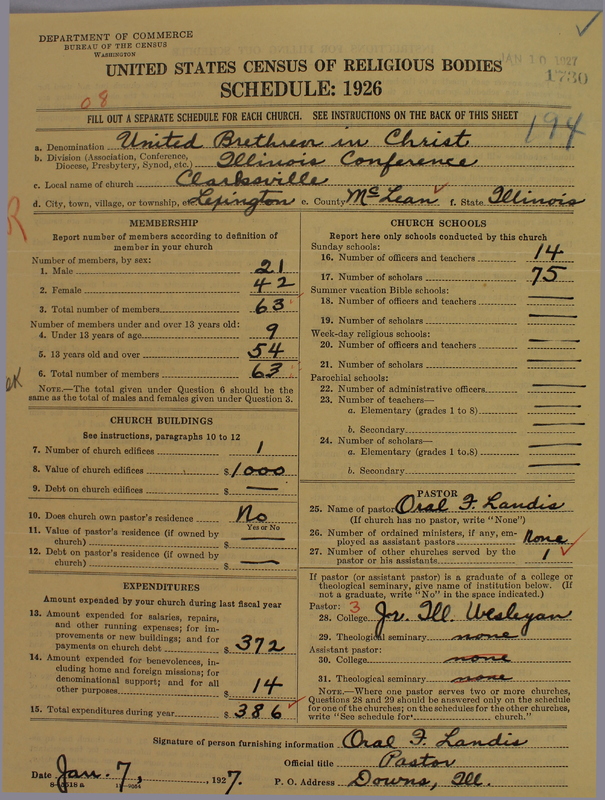 DEPARTMENT OF COMMERCE
BUREAU OF THE CENSUS
WASHINGTON
JAN 10 1927
1730
UNITED STATES CENSUS OF RELIGIOUS BODIES
SCHEDULE: 1926
08
FILL OUT A SEPARATE SCHEDULE FOR EACH CHURCH. SEE INSTRUCTIONS ON THE BACK OF THIS SHEET
194
a. Denomination United Brethren in Christ
b. Division (Association, Conference, Diocese, Presbytery, Synod, etc.) Illinois Conference
c. Local name of church Clarksville
d. City, town, village, or township, etc. Lexington e. County McLean f. State Illinois
R
MEMBERSHIP
Report number of members according to definition of
member in your church
Number of members, by sex:
1. Male 21
2. Female 42
3. Total number of members 63
Number of members under and over 13 years old:
4. Under 13 years of age 9
5. 13 years old and over 54
6. Total number of members 63
NOTE.—The total given under Question 6 should be
same as the total of males and females given under Question 3.
CHURCH BUILDINGS
See instructions, paragraphs 10 to 12
7. Number of church edifices 1
8. Value of church edifices $1000
9. Debt on church edifices $ —
10. Does church own pastor's residence No
Yes or No
11. Value of pastor's residence (if owned by
church) $ —
12. Debt on pastor's residence (if owned by
church) $ —
EXPENDITURES
Amount expended by your church during last fiscal year
13. Amount expended for salaries, repairs,
and other running expenses; for im-
provements or new buildings; and for
payments on church debt $ 372
14. Amount expended for benevolences, in-
cluding home and foreign missions; for
denominational support; and for all
other purposes $ 14
15. Total expenditures during year $ 386
CHURCH SCHOOLS
Report here only schools conducted by this church
Sunday schools:
16. Number of officers and teachers 14
17. Number of scholars 75
Summer vacation Bible schools:
18. Number of officers and teachers —
19. Number of scholars —
Week-day religious schools:
20. Number of officers and teachers —
21. Number of scholars —
Parochial schools:
22. Number of administrative officers —
23. Number of teachers—
a. Elementary (grades 1 to 8) —
b. Secondary —
24. Number of scholars—
a. Elementary (grades 1 to 8) —
b. Secondary —
PASTOR
25. Name of pastor Oral F. Landis
(If church has no pastor, write "None")
26. Number of ordained ministers, if any, em-
ployed as assistant pastors None
27. Number of other churches served by the
pastor or his assistants 1
If pastor (or assistant pastor) is a graduate of a college or
theological seminary, give name of institution below. (If
not a graduate, write "No" in the space indicated.)
Pastor: 3
28. College Jr. Ill. Wesleyan
29. Theological seminary none
Assistant pastor:
30. College none
31. Theological seminary none
NOTE.—Where one pastor serves two or more churches,
Questions 28 and 29 should be answered only on the schedule
for one of the churches; on the schedules for the other churches,
write "See schedule for church."
Signature of person furnishing information Oral F. Landis
Official title Pastor
Date Jan. 7, 1927. P. O. Address Downs, Ill.